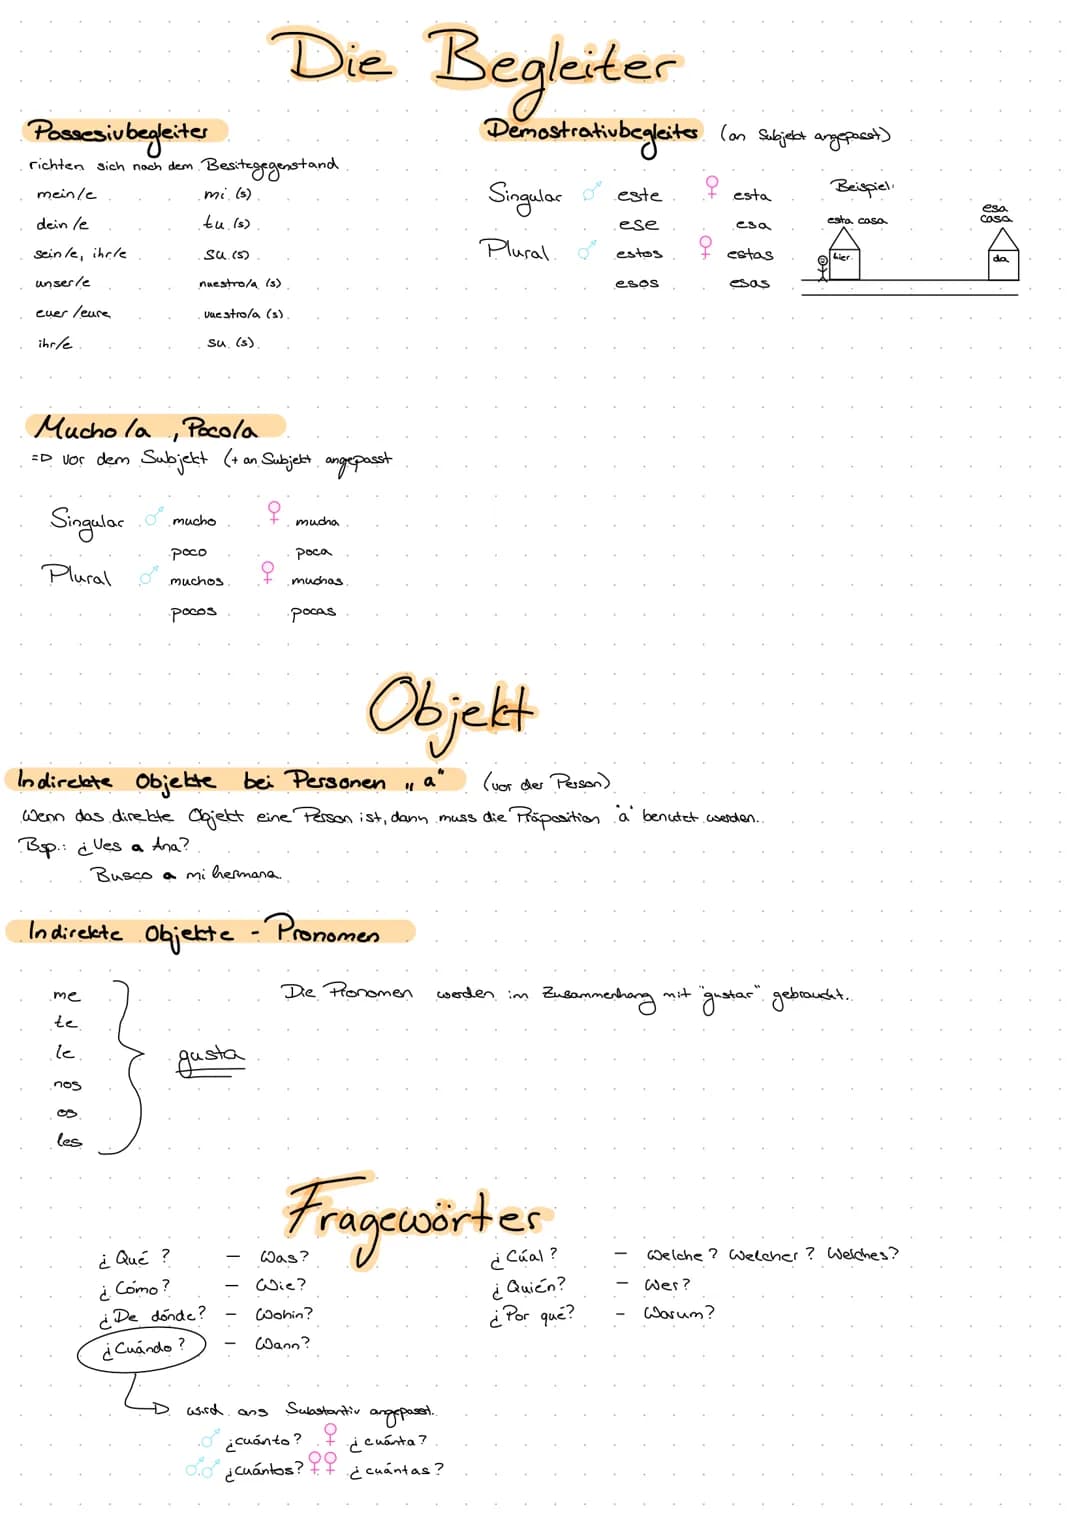 Die Begleiter
Possesivbegleiter
richten sich nach dem Besitzgegenstand
mein/e mi (s)
dein/e tu (s)
sein/e, ihr/e su (s)
unser/e nuestro/a (s)
euer/eure vuestro/a (s)
ihr/e su (s)
Demostrativbegleites (an Subjekt angepasst)
Singular ♂ este ♀ esta
ese esa
Plural ♂ estos ♀ estas
esos esas
Beispiel:
esta casa
hier
esa
casa
da
Mucho/a, Poco/a
=> vor dem Subjekt (+ an Subjekt angepasst
Singular ♂ mucho ♀ mucha
poco poca
Plural ♂ muchos ♀ muchas
pocos pocas
Objekt
Indirekte Objekte bei Personen „a" (vor der Person)
Wenn das direkte Objekt eine Person ist, dann muss die Präposition 'a' benutzt werden.
Bsp.: ¿Ves a Ana?
Busco a mi hermana.
Indirekte Objekte - Pronomen
me
te
le
nos
os
les
gusta
Die Pronomen werden im Zusammenhang mit "gustar" gebraucht.
Fragewörter
¿Qué? - Was?
¿Cómo? - Wie?
¿De dónde? - Wohin?
¿Cuándo? - Wann?
¿Cúal? - Welche? Welcher? Welches?
¿Quién? - Wer?
¿Por qué? - Warum?
wird ans Substantiv angepasst.
♂ ¿cuánto? ♀ ¿cuánta?
♂♂ ¿cuántos? ♀♀ ¿cuántas?